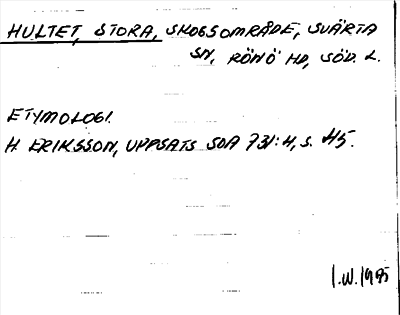 HULTET, STORA, SKOGSOMRÅDE, SVÄRTA
SN, RÖNÖ HD, SÖD. L.
ETYMOLOGI.
H. ERIKSSON, UPPSATS SOA 731:4, S. 45.
I.W. 1985